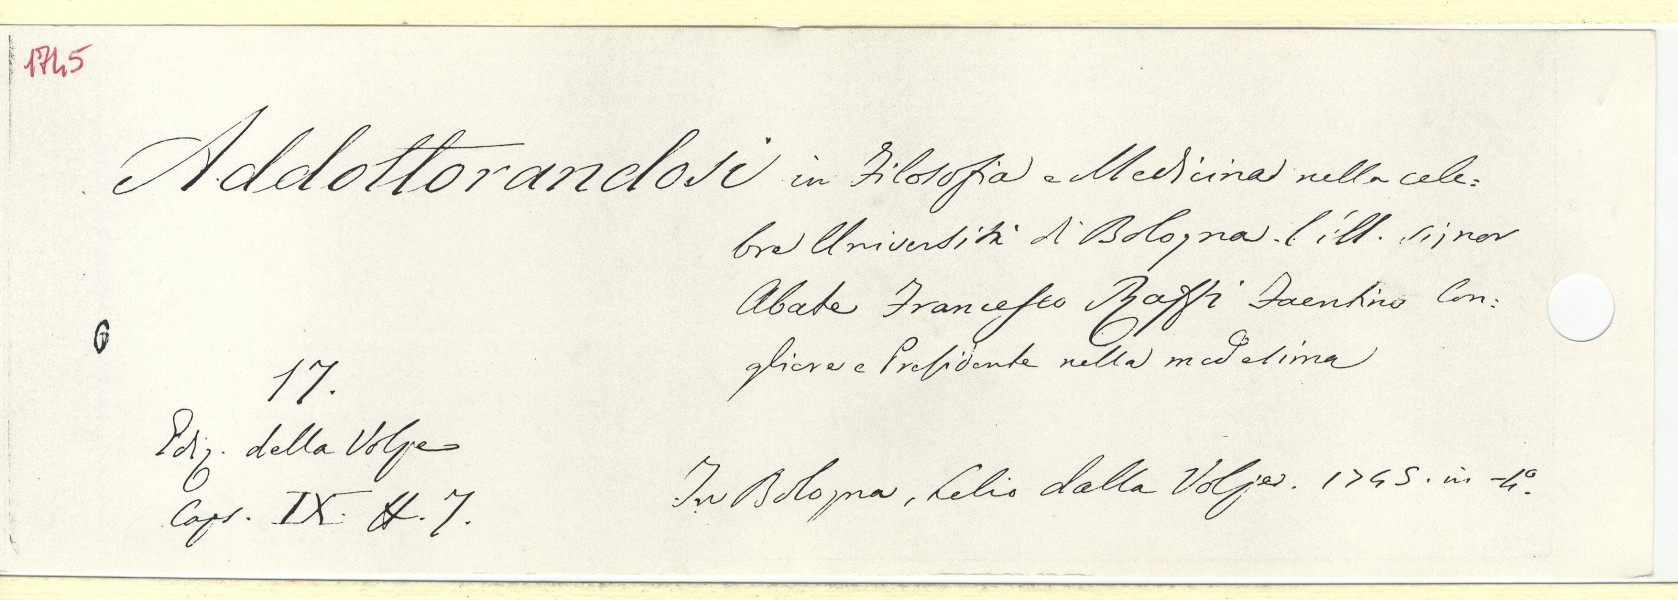 1745
Addottorandosi in Filosofia e Medicina nella cele:
bre Università di Bologna l'ill. signor
Abate Francesco Raffi Faentino Con:
gliere e Presidente nella medesima
6
17.
Ediz. della Volpe
Caps. IX. H. 7.
In Bologna, Lelio dalla Volpe. 1745. in -4°.